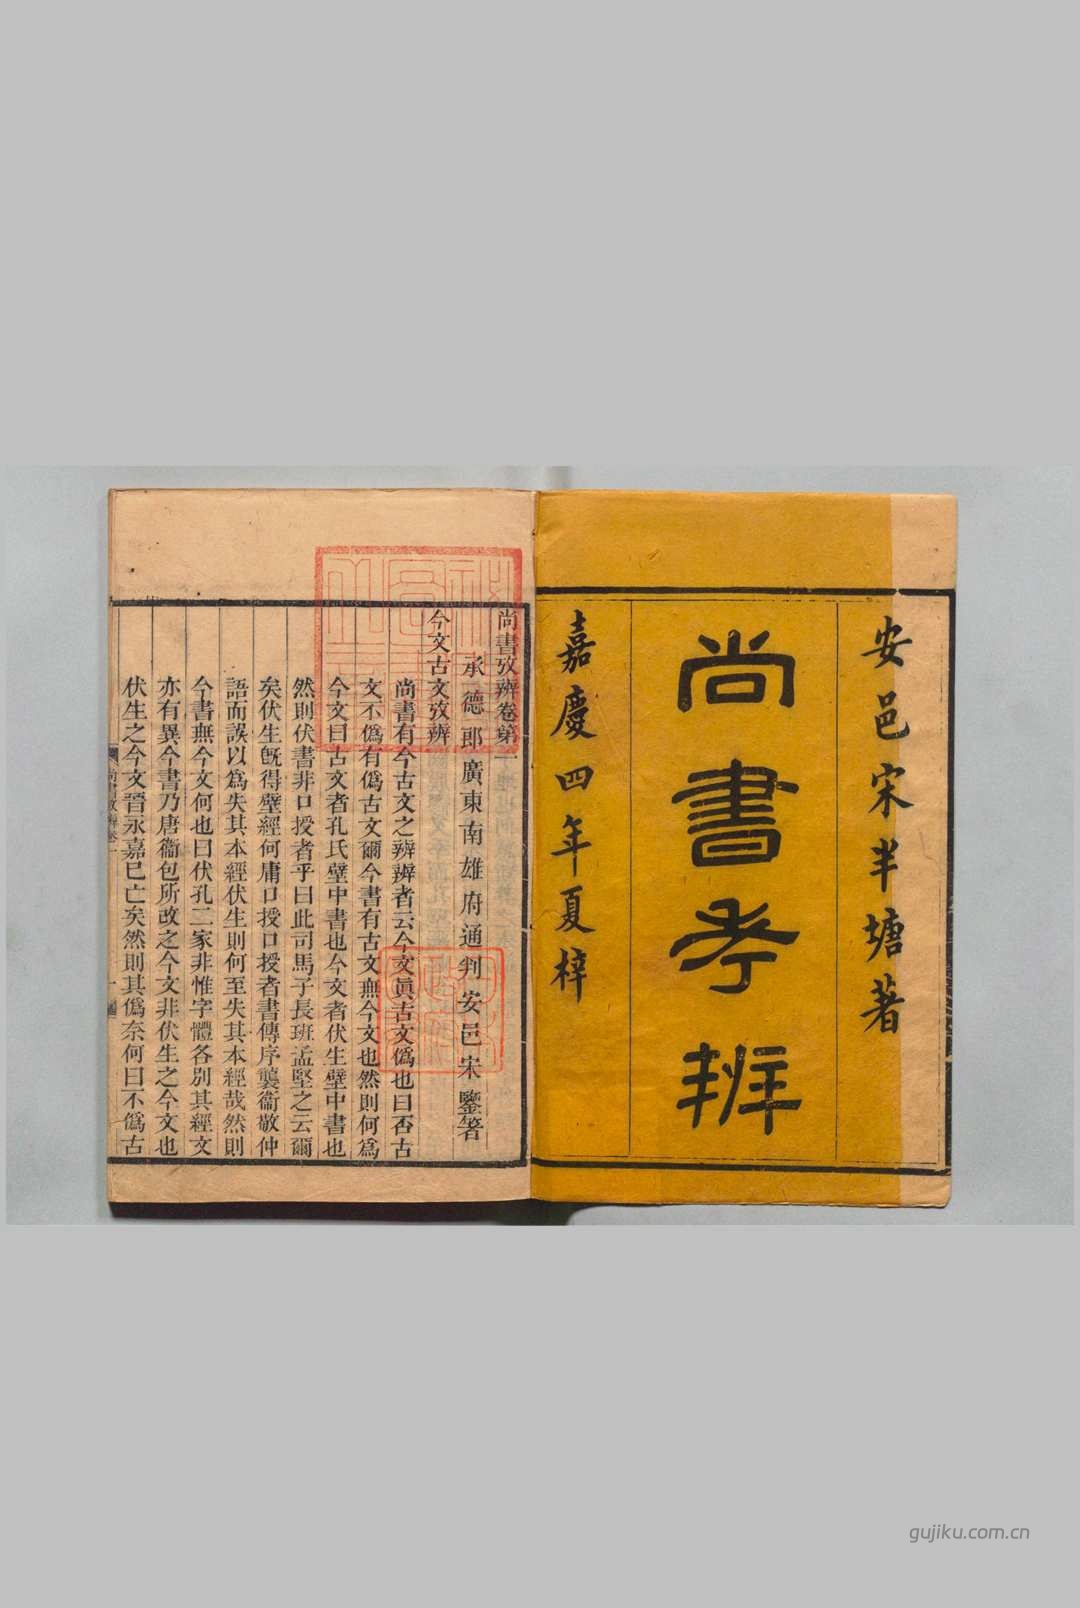 安邑宋半塘著
尚書考辨
嘉慶四年夏梓
尚書攷辨卷第一
承德郎廣東南雄府通判安邑宋鑒箸
今文古文攷辨
尚書有今古文之辨辨者云今文眞古文僞也曰否古
文不僞有僞古文爾今書有古文無今文也然則何爲
今文曰古文者孔氏壁中書也今文者伏生壁中書也
然則伏書非口授者乎曰此司馬子長班孟堅之云爾
矣伏生旣得壁經何庸口授口授者書傳序襲衞敬仲
語而誤以爲失其本經伏生則何至失其本經哉然則
今書無今文何也曰伏孔二家非惟字體各別其經文
亦有異今書乃唐衞包所改之今文非伏生之今文也
伏生之今文晉永嘉巳亡矣然則其僞奈何曰不僞古
尚書攷辨卷一
一
gujiku.com.cn